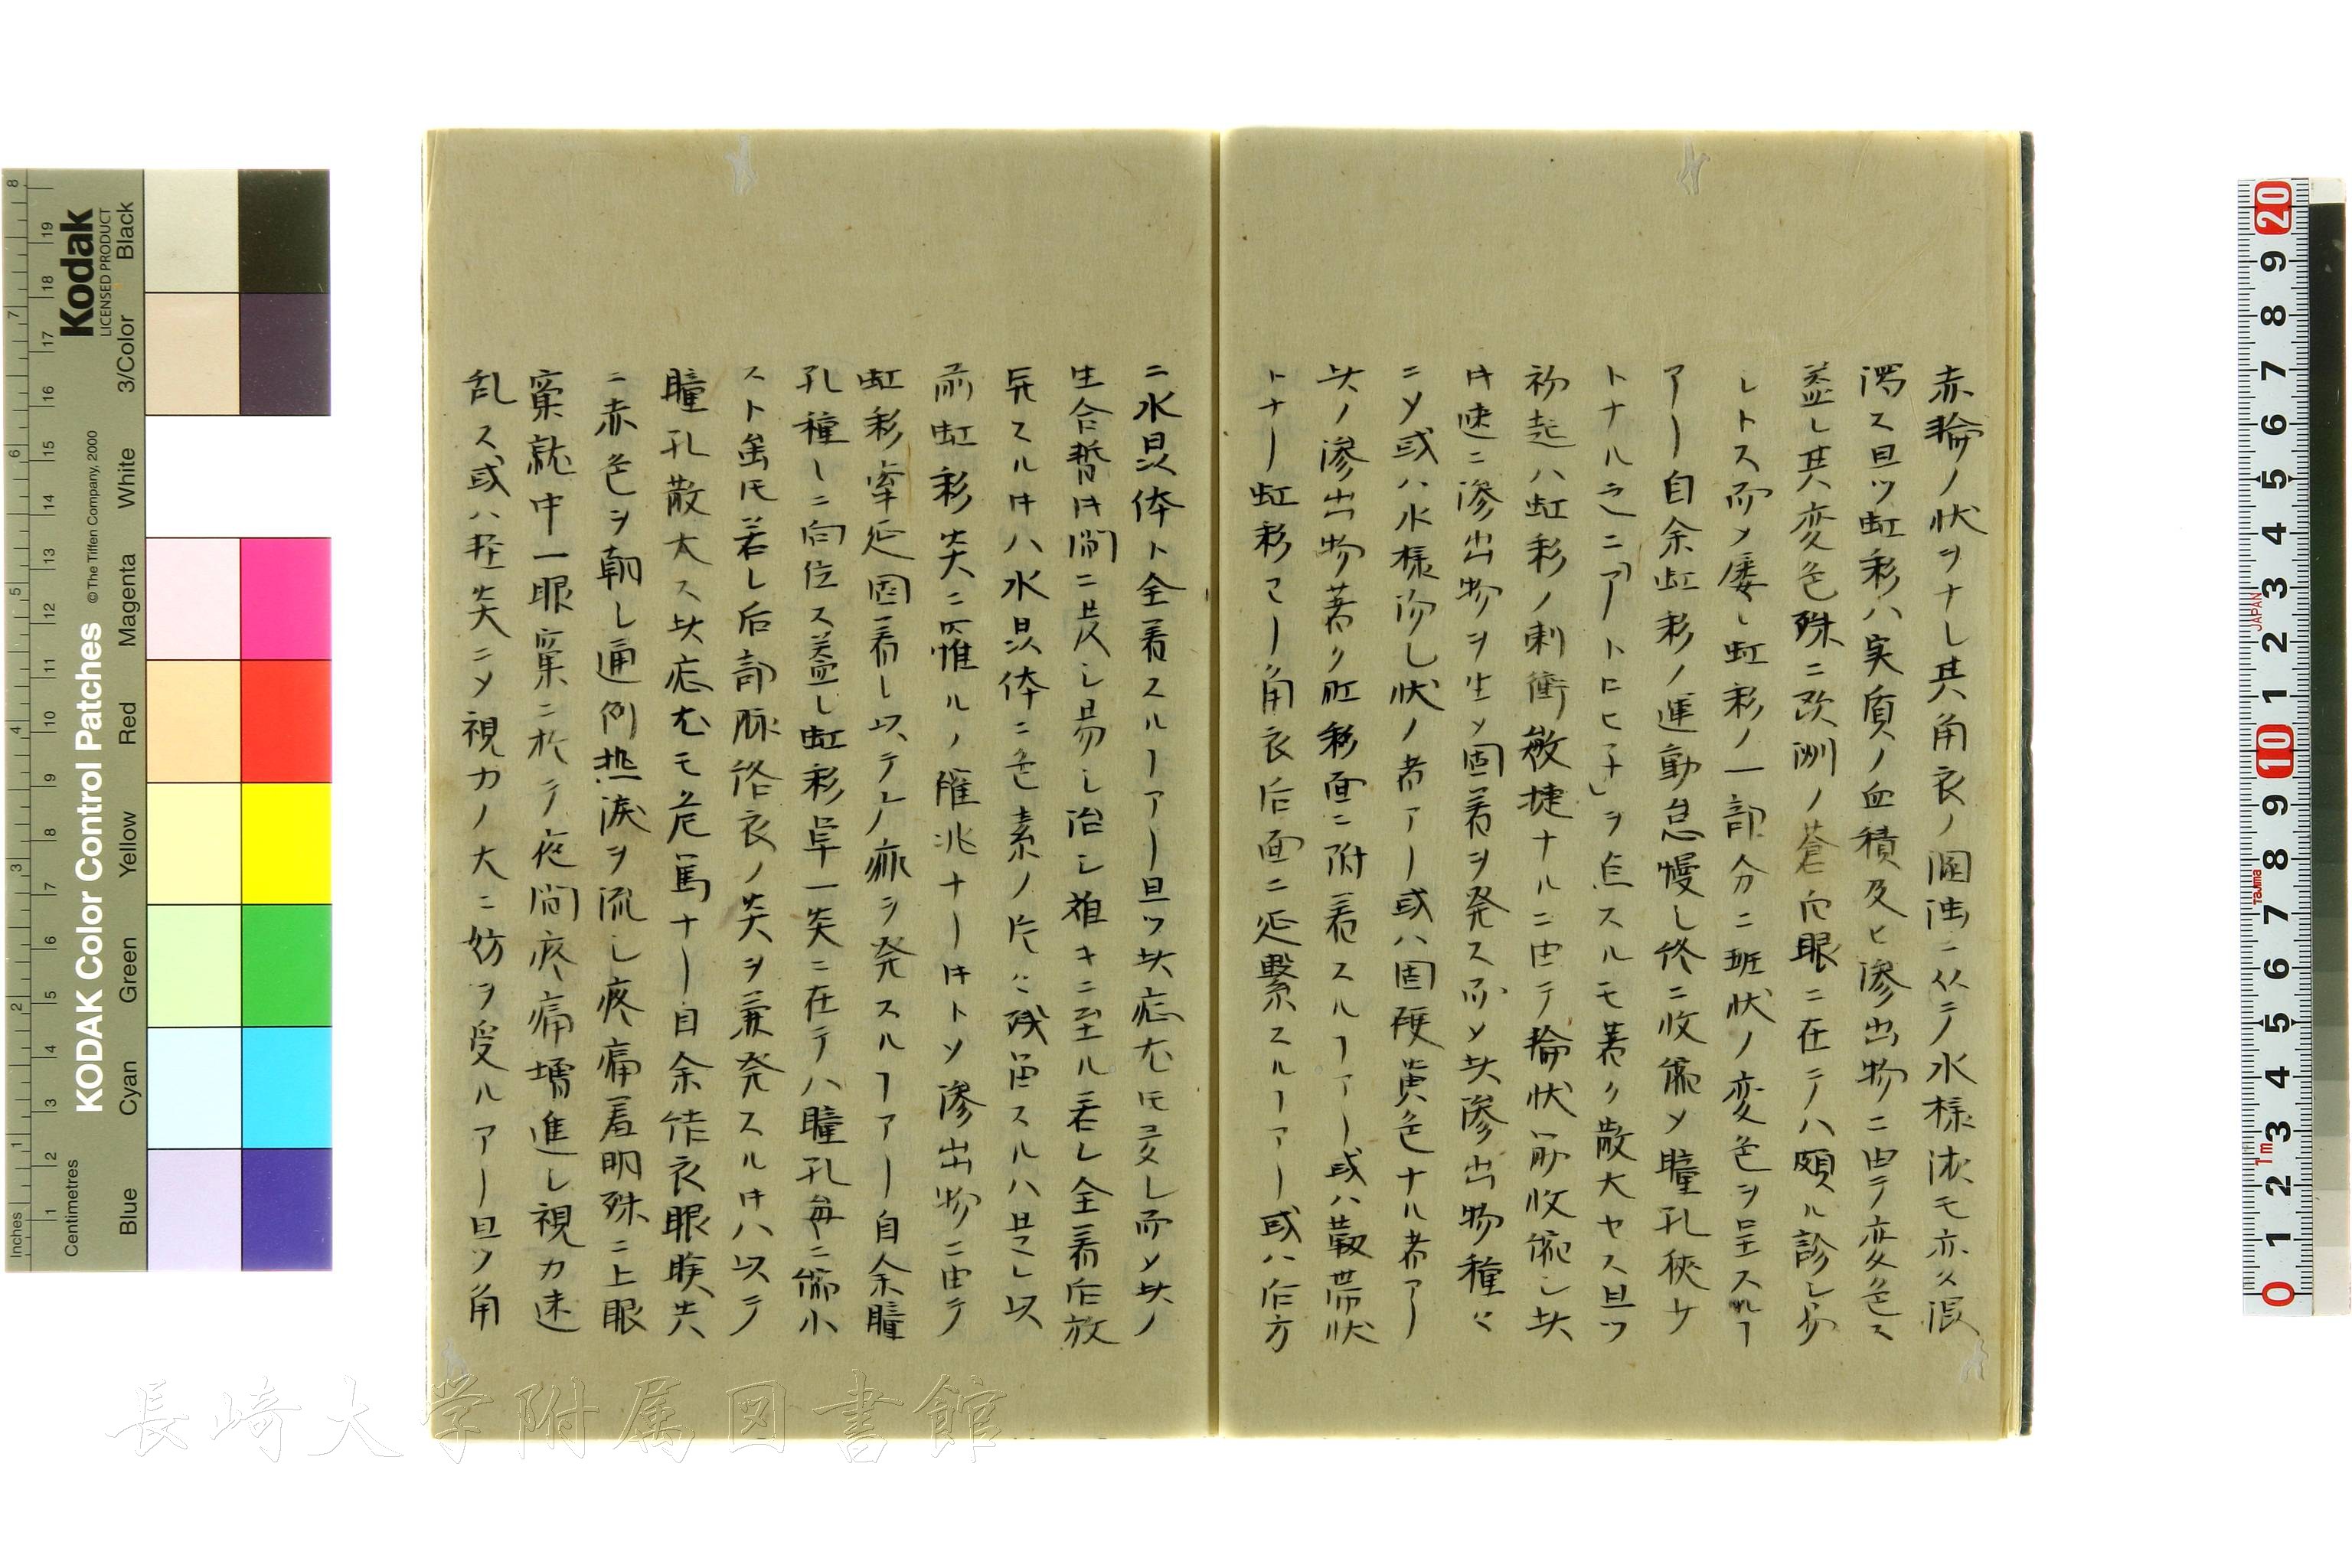 赤輪ノ状ヲナレ其角衣ノ溷浊ニ从テ水様液モ亦久溷
濁ス且ツ虹彩ハ実質ノ血積及ヒ滲出物ニ由テ变色ス
盖シ其変色殊ニ改渕ノ蒼白眼ニ在テハ頗ル診シ易
シトス而メ屡シ虹彩ノ一部分ニ斑状ノ変色ヲ呈スルヿ
アリ自余虹彩ノ運動怠慢シ終ニ收縮メ瞳孔狭サ
トナル之ニ「アトロヒ子」ヲ点スルモ著ク散大セス且ツ
初起ハ虹彩ノ刺衝敏捷ナルニ由テ輪状筋收縮シ其
速ニ滲出物ヲ生メ固着ヲ発ス而メ其滲出物種々
ニメ或ハ水様沕シ状ノ者アリ或ハ固硬黄色ナル者アリ
其ノ滲出物著ク虹彩面ニ附着スルヿアリ或ハ皺帯状
トナリ虹彩ヨリ角衣后面ニ延繋スルヿアリ或ハ后方
ニ水晶体ト全着スルヿアリ且ツ其症尤モ交シ而メ其ノ
生合暫時間ニ及シ易シ治シ難キニ至ル若シ全着后放
死スル時ハ水晶体ニ色素ノ片々残畄スルハ是レ以
前虹彩炎ニ罹ルノ確兆ナリ時トメ滲出物ニ由テ
虹彩牽延固着シ以テ上ノ症ヲ発スルヿアリ自余瞳
孔種シニ向位ス盖シ虹彩単一炎ニ在テハ瞳孔毎ニ縮小
スト雖モ若シ后部脉絡衣ノ炎ヲ兼発スル時ハ以テ
瞳孔散大ス其症尤モ危篤ナリ自余結衣眼瞼共
ニ赤色ヲ朝シ通例熱涙ヲ流シ疼痛羞明殊ニ上眼
窠就中一眼窠ニ於テ夜間疼痛増進シ視力速
乱ス或ハ軽炎ニメ視力ノ大ニ妨ヲ受ルアリ且ツ角
長崎大学附属図書館
Kodak
LICENSED PRODUCT
KODAK Color Control Patches
© The Tiffen Company, 2000
Black
3/Color
White
Magenta
Red
Yellow
Green
Cyan
Blue
Inches
Centimetres
JAPAN
Tajima
1m